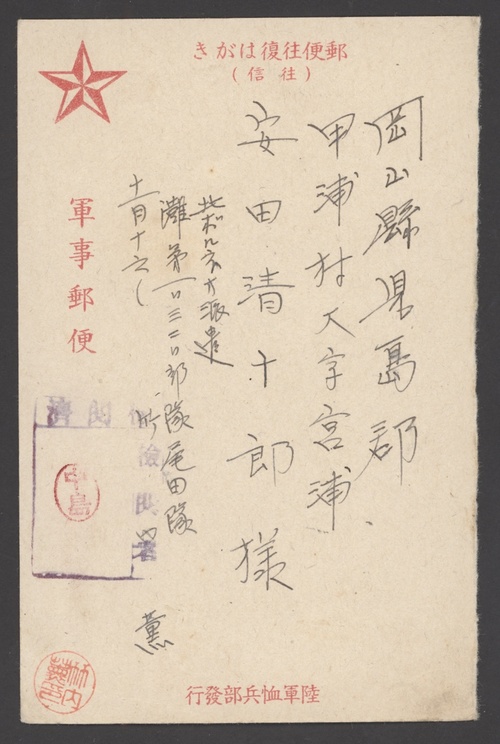 郵便往復はがき
(往信)
軍事郵便
岡山縣児島郡
甲浦村大字宮浦
安田清十郎様
北ボルネオ派遣
灘第一〇三二〇部隊尾田隊
薫
十一月十六
検閲済
検閲者
中島
陸軍恤兵部發行